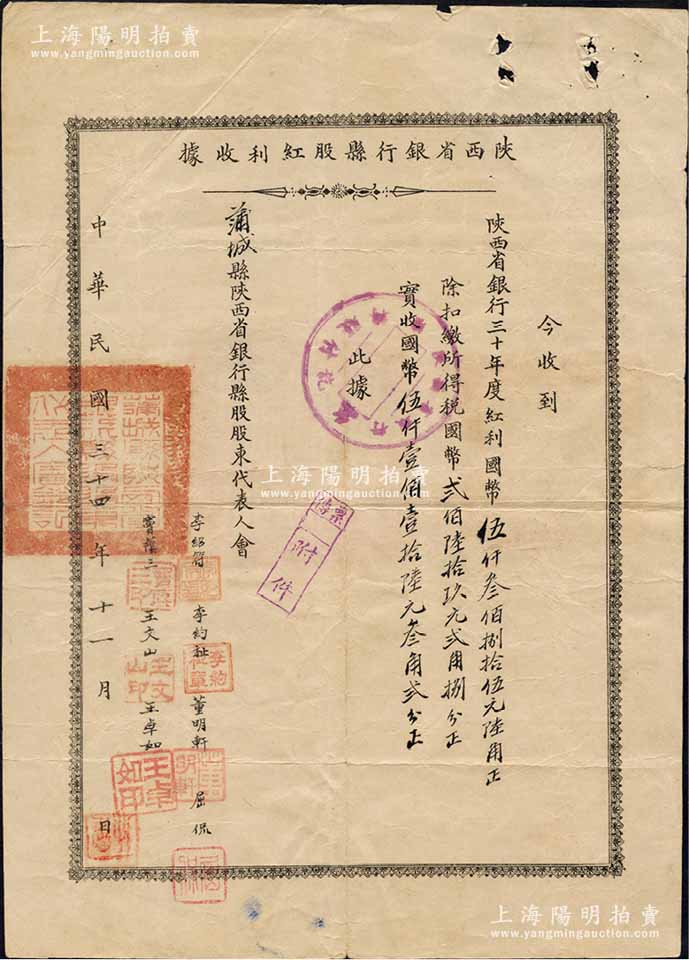 上海陽明拍賣
www.yangmingauction.com
陝西省銀行縣股紅利收據
今收到
陝西省銀行三十年度紅利國幣伍仟叁佰捌拾伍元陸角正
除扣繳所得税國幣貳佰陸拾玖元貳角捌分正
實收國幣伍仟壹佰壹拾陸元叁角貳分正
此據
蒲城縣陝西省銀行縣股股東代表人會
李約祉 董明軒 屈侃
王文山 王卓如
中華民國三十四年十一月 日
傳票
附件
王文山印
王卓如印
上海陽明拍賣
www.yangmingauction.com
上海陽明拍賣
www.yangmingauction.com